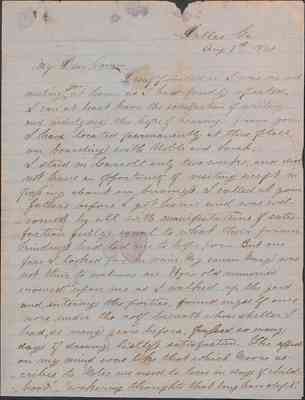 Dallas Ga
Aug 8th
My Dear Cousin
disappointed as I was in not
meeting you at home as I had fondly expected,
I can at least have the satisfaction of writing
and indulging the hope of hearing from you
I have located permanently at this place
am boarding with Webb and Sarah.
I staid in Carroll only two weeks, and did
not have an opportunity of visiting except in
passing about on business I called at your
Fathers before I got home and was wel-
comed by all with manifestations of satis-
faction fully equal to what their former
kindness had led me to hope for. But one
face I looked for in vain My cousin
not there to welcome me. Old memories
crowded upon me as I walked up the yard
and entering the portico, found myself once
more under the roof beneath whose shelter I
had, so many years before, passed so many
days of dreamy, listless satisfaction. The effect
on my mind was like that which Moore as-
cribes to Notes we used to love in days of child-
hood "wakening thoughts that long have slept."